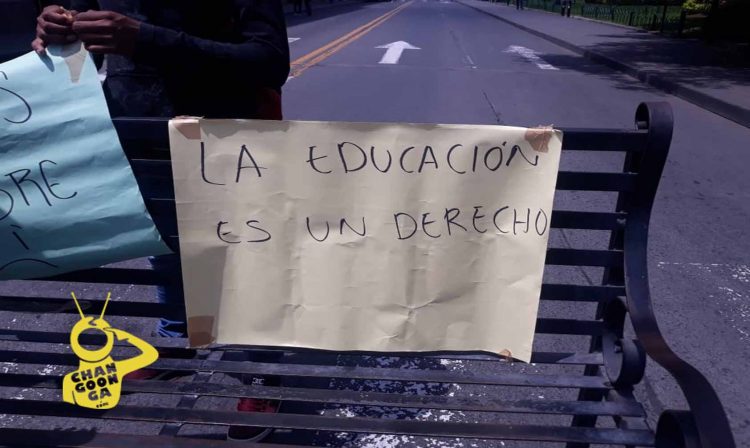 LA EDUCACIÓN
ES UN DERECHO
CHAN
GOON
GA
.COM